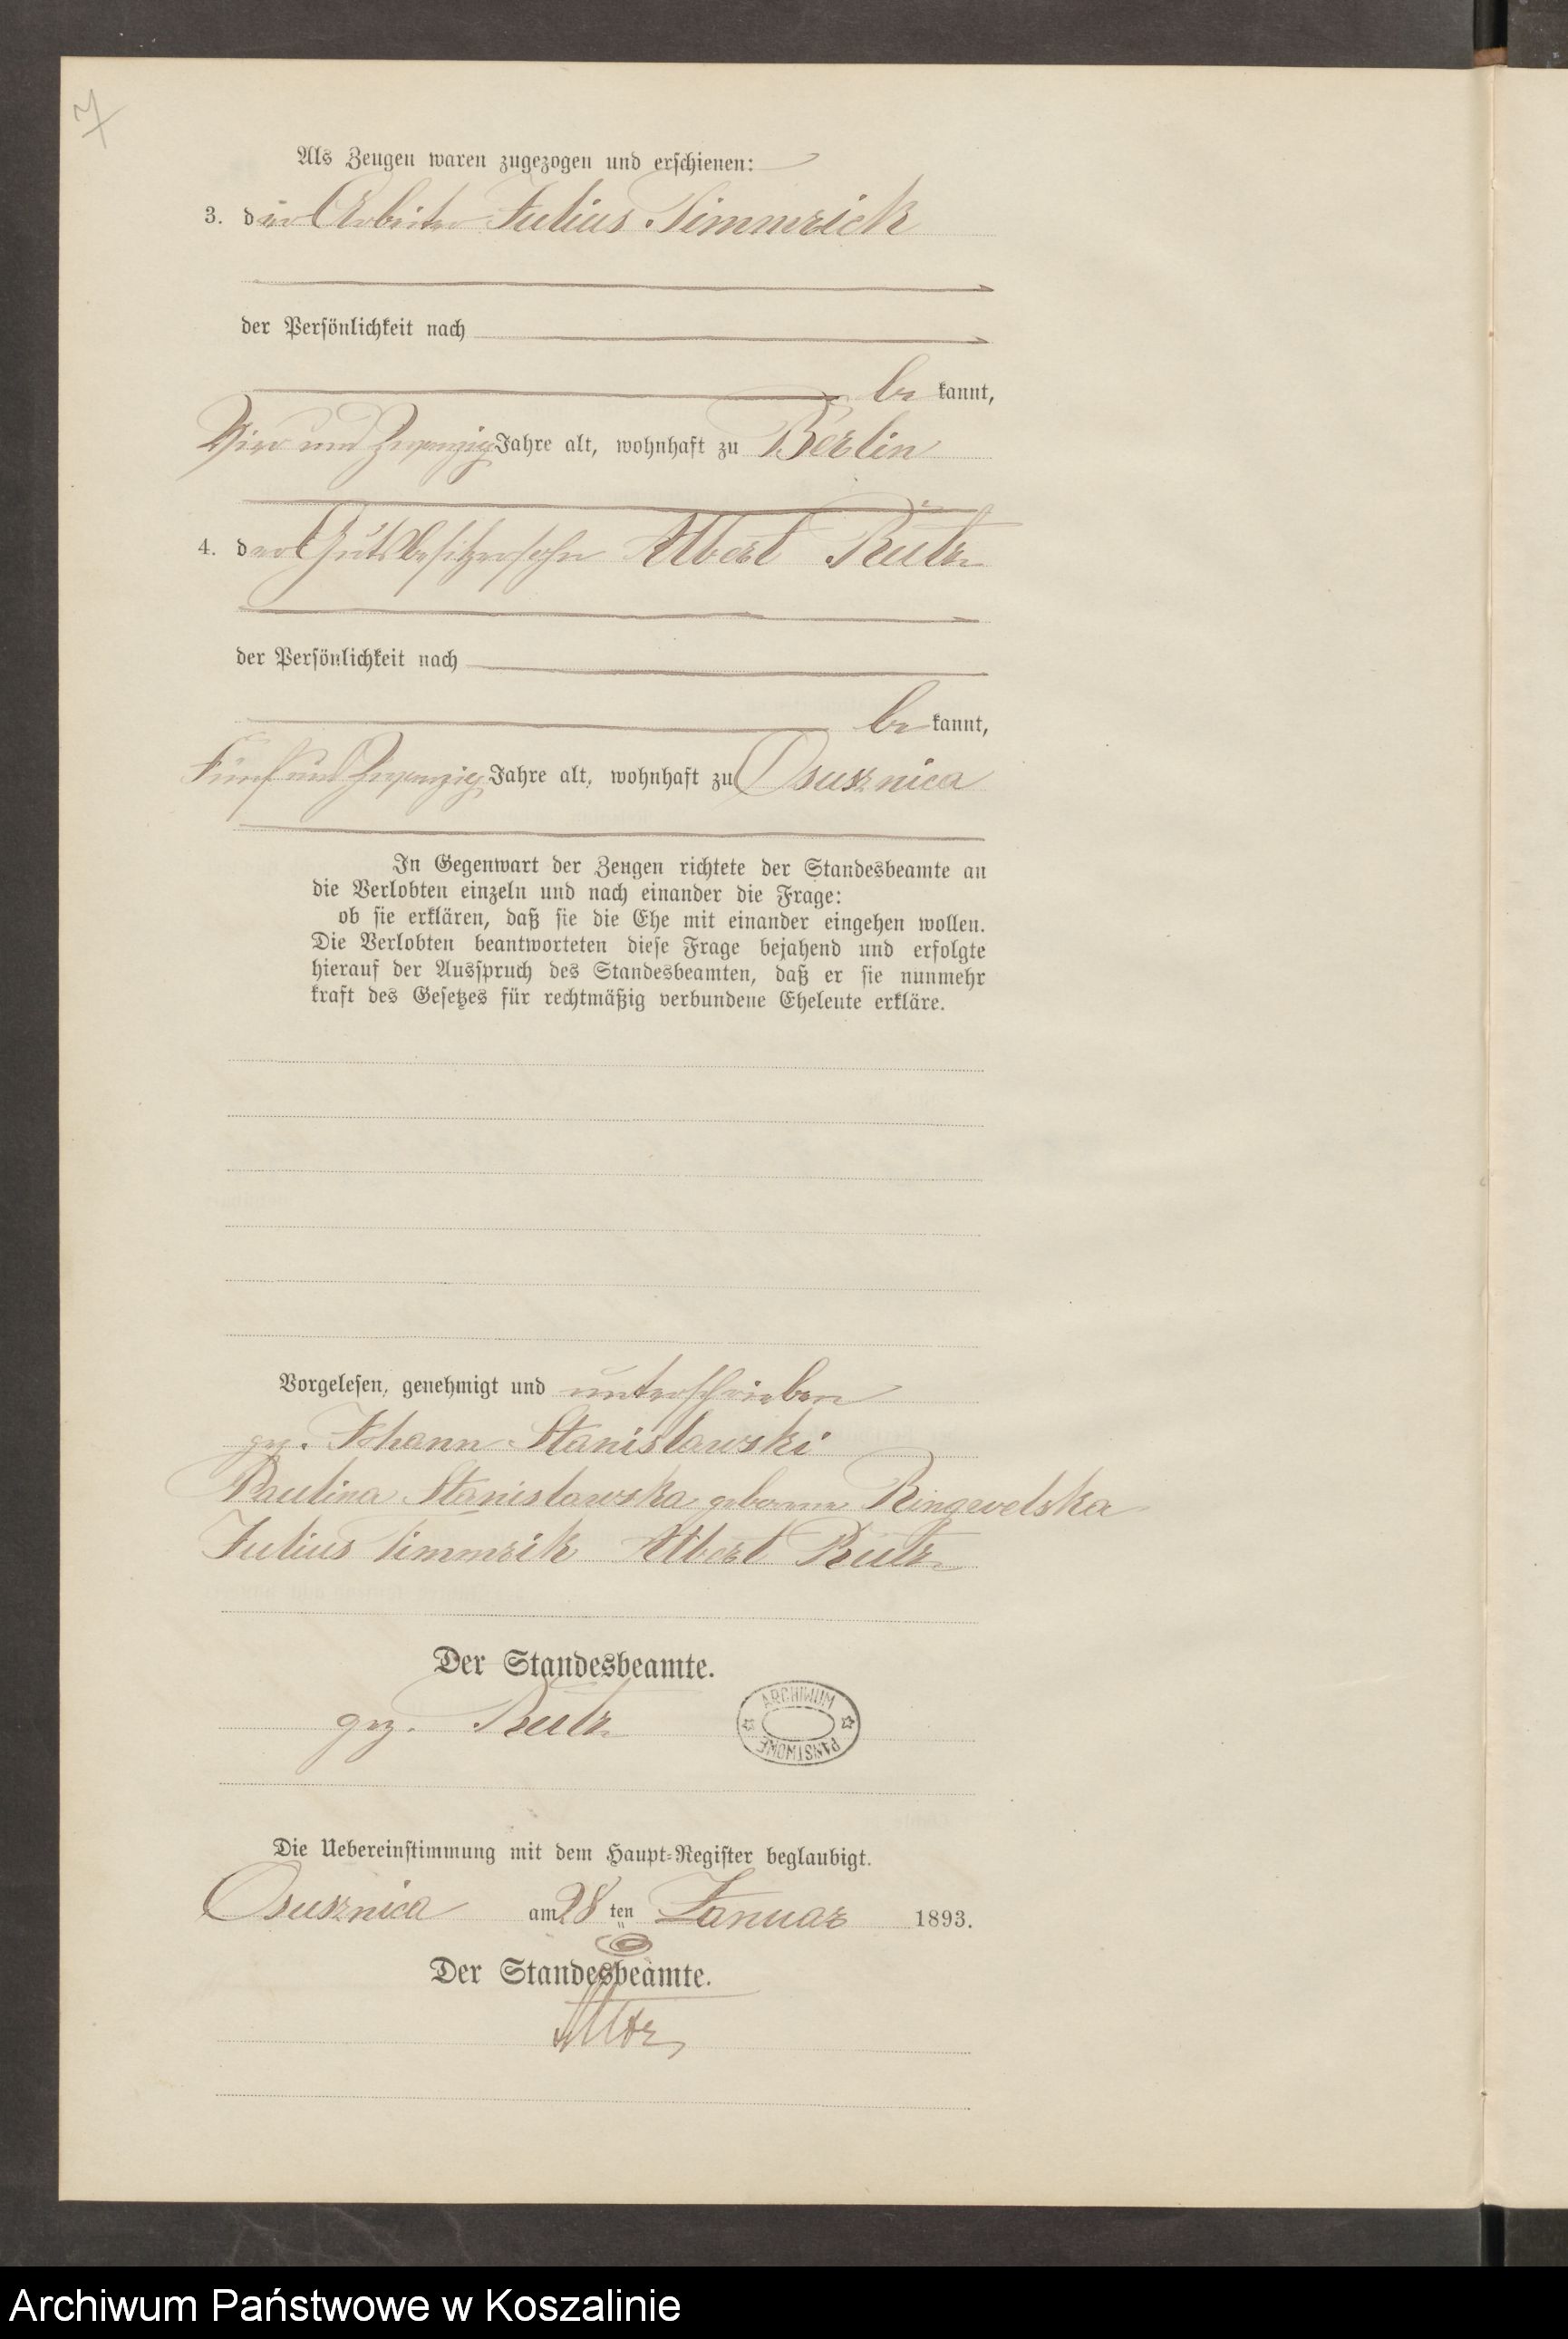 7
Als Zeugen waren zugezogen und erschienen:
3. der Arbeiter Julius Timmreick
der Persönlichkeit nach
be kannt,
Vier und Zwanzig Jahre alt, wohnhaft zu Berlin
4. der Gutsbesitzersohn Albert Rutz
der Persönlichkeit nach
be kannt,
Fünf und Zwanzig Jahre alt, wohnhaft zu Osusznica
In Gegenwart der Zeugen richtete der Standesbeamte an
die Verlobten einzeln und nach einander die Frage:
ob sie erklären, daß sie die Ehe mit einander eingehen wollen.
Die Verlobten beantworteten diese Frage bejahend und erfolgte
hierauf der Ausspruch des Standesbeamten, daß er sie nunmehr
kraft des Gesetzes für rechtmäßig verbundene Eheleute erkläre.
Vorgelesen, genehmigt und unterschrieben
gez. Johann Stanislawski
Paulina Stanislawska geborene Ringwelska
Julius Timmreik Albert Rutz
Der Standesbeamte.
gez. Rutz
ARCHIWUM PAŃSTWOWE
Die Uebereinstimmung mit dem Haupt-Register beglaubigt.
Osusznica am 28 ten Januar 1893.
Der Standesbeamte.
Archiwum Państwowe w Koszalinie